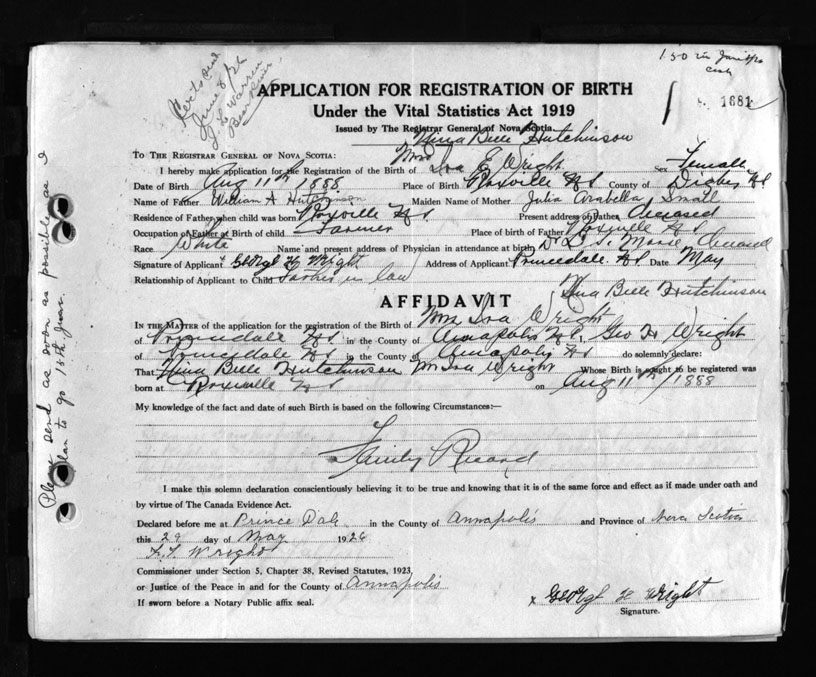 1.50 in June 8/26
cash
Cert send
June 8/26
L Warren
Bear River
1681
APPLICATION FOR REGISTRATION OF BIRTH
Under the Vital Statistics Act 1919
Issued by The Registrar General of Nova Scotia
Nina Belle Hutchinson
TO THE REGISTRAR GENERAL OF NOVA SCOTIA:
I hereby make application for the Registration of the Birth of Mrs Iva E. Wright Sex Female
Date of Birth Aug 11th 1888 Place of Birth Roxville N S County of Digby N S
Name of Father William A Hutchinson Maiden Name of Mother Julia Arabella Small
Residence of Father when child was born Roxville N S Present address of Father Deceased
Occupation of Father at Birth of child Farmer Place of birth of Father Roxville N S
Race White Name and present address of Physician in attendance at birth Dr L. S. Morse Deceased
Signature of Applicant George H Wright Address of Applicant Princedale N S Date May
Relationship of Applicant to Child Father in law
Nina Belle Hutchinson
AFFIDAVIT
IN THE MATTER of the application for the registration of Birth of Mrs Iva Wright
of Princedale N S in the County of Annapolis N S, Geo H Wright
of Princedale N S in the County of Annapolis N S do solemnly declare:
That Nina Belle Hutchinson Mrs Iva Wright Whose Birth is sought to be registered was
born at Roxville N S on Aug 11th 1888
My knowledge of the fact and date of such Birth is based on the following Circumstances:—
Family Record
I make this solemn declaration conscientiously believing it to be true and knowing that it is of the same force and effect as if made under oath and
by virtue of The Canada Evidence Act.
Declared before me at Prince Dale in the County of Annapolis and Province of Nova Scotia
this 29 day of May 1926
F. F. Wright
Commissioner under Section 5, Chapter 38, Revised Statutes, 1923,
or Justice of the Peace in and for the County of Annapolis
If sworn before a Notary Public affix seal.
x George H Wright
Signature.
Please send as soon as possible as I
plan to go 15th June.